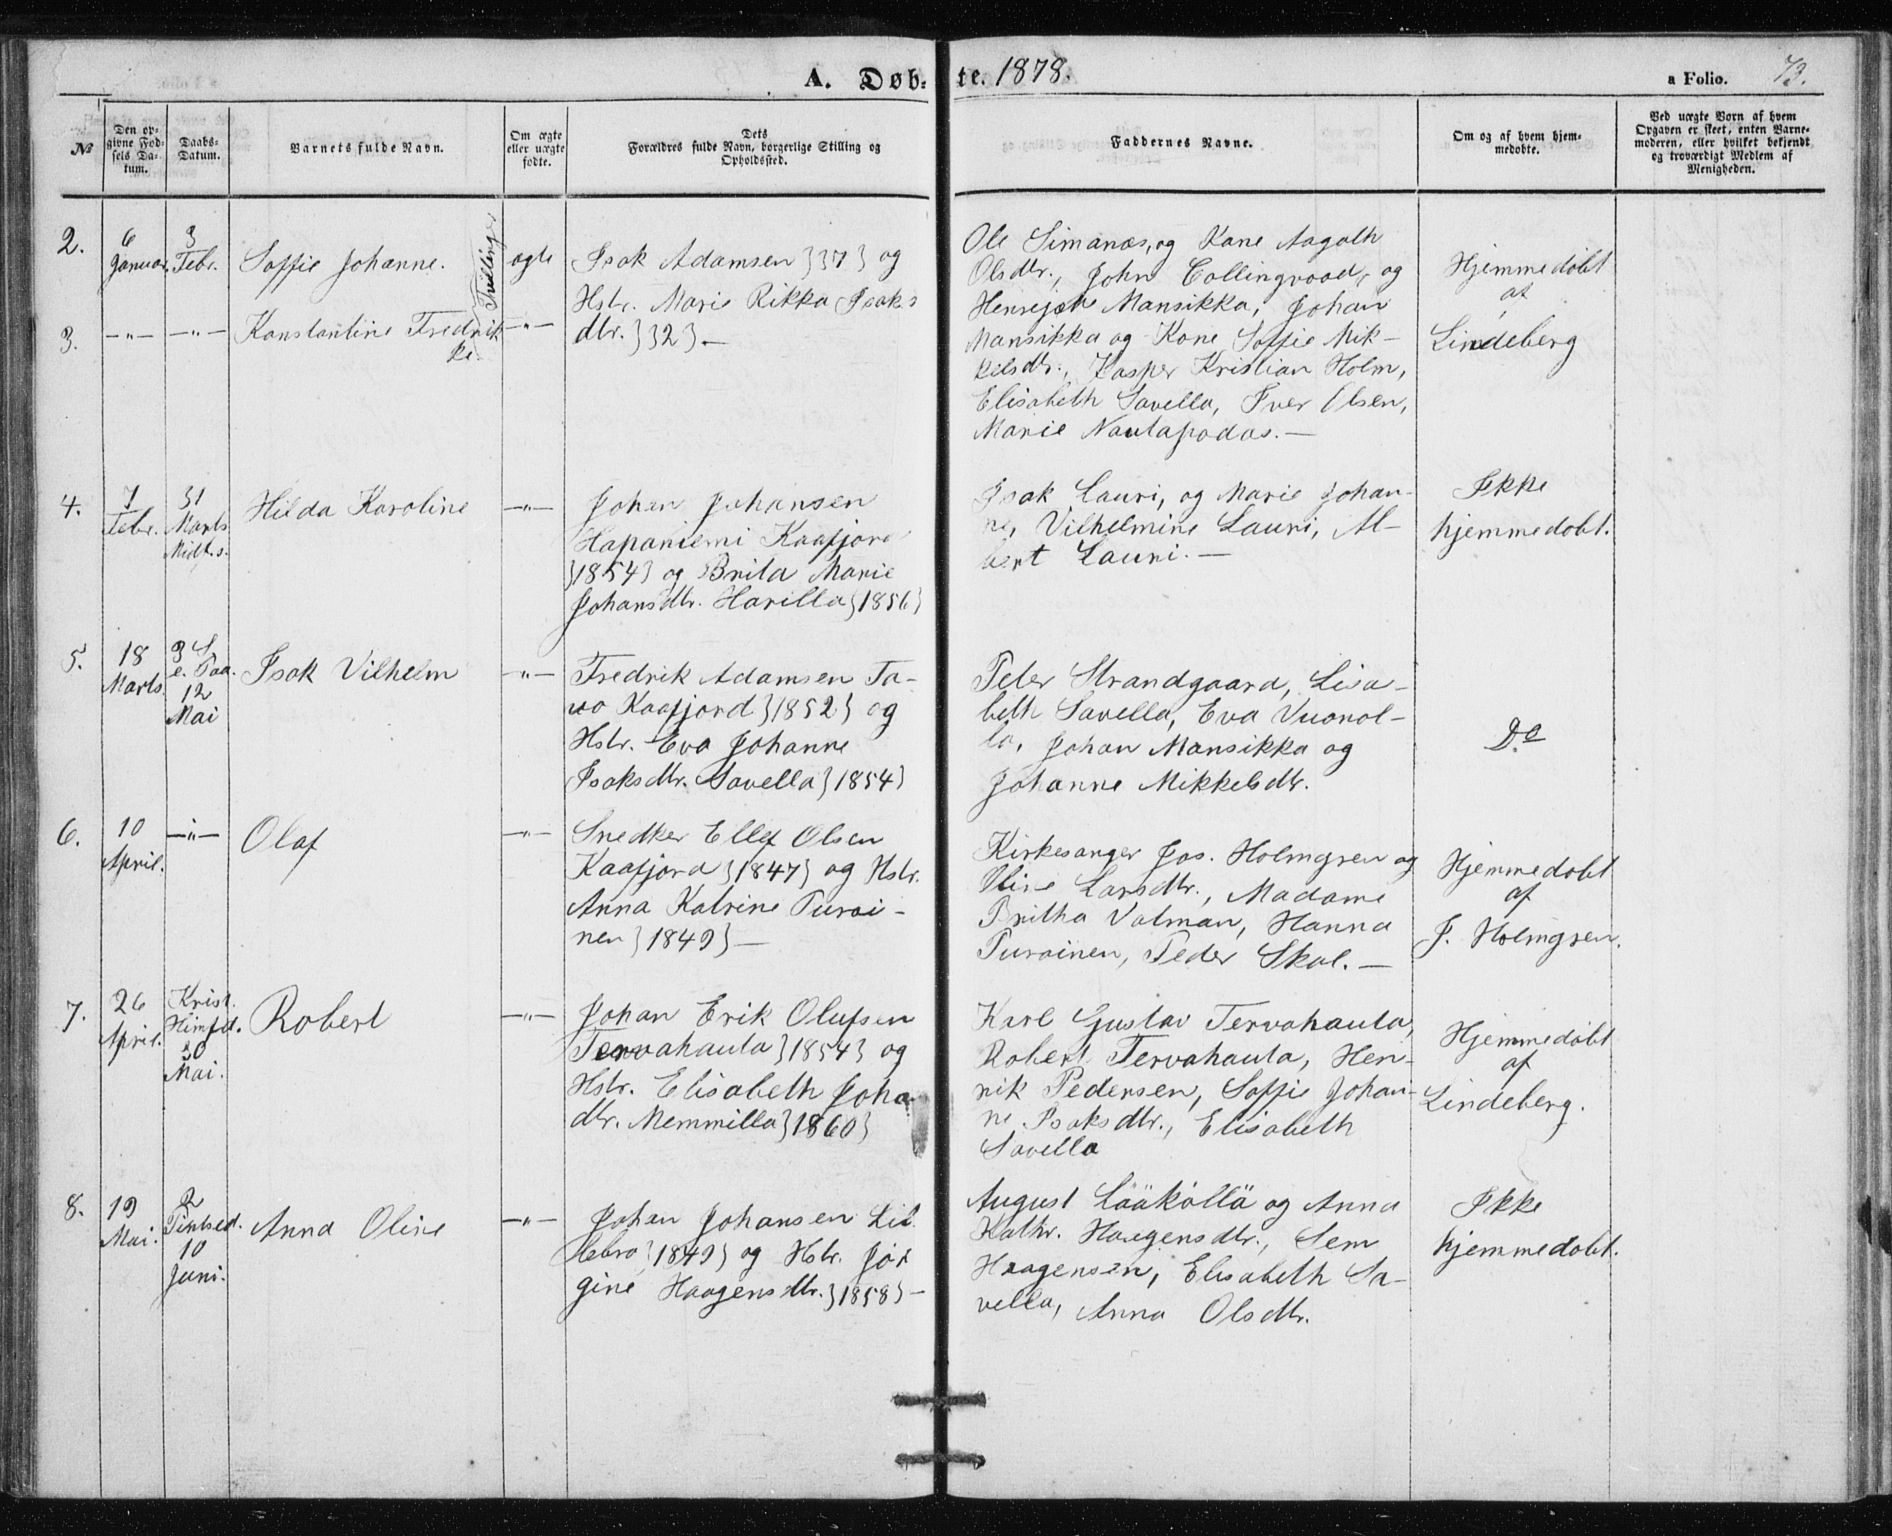 A. Døbte. 1878.
a Folio. 73.
№
Den opgivne Fødsels Datum.
Daabs-Datum.
Barnets fulde Navn.
Om ægte eller uægte fødte.
Dets Forældres fulde Navn, borgerlige Stilling og Opholdssted.
Faddernes Navne.
Om og af hvem hjemmedøbte.
Ved uægte Børn af hvem Opgaven er skeet, enten Barnemoderen, eller hvilket bekjendt og troværdigt Medlem af Menigheden.
2.
6
Januar.
3
Febr.
Soffie Johanne.
Tvillinger
ægte
Isak Adamsen }37} og
Hstr. Marie Rikka Isaks
dtr. }32} —
Ole Simanæs, og Kone Aagoth
Olsdtr., John Collingwood, og
Mansikka, Johan
Mansikka og Kone Soffie Mik-
kelsdtr., Kasper Kristian Holm,
Elisabeth Savella, Iver Olsen,
Marie Nautapodas. —
Hjemmedøbt
af
Lindeberg
3.
—"—
—"—
Konstantine Fredrik
ke.
—"—
4.
7
Febr.
31
Marts
Midf. s.
Hilda Karoline
—"—
Johan Johansen
Hapaniemi Kaafjord
}1854} og Brita Marie
Johansdtr. Harilla }1856}
Isak Lauri, og Marie Johan-
ne, Vilhelmine Lauri, Al-
bert Lauri. —
Ikke
hjemmedøbt.
5.
18
Marts.
3 S.
e. Paa.
12
Mai
Isak Vilhelm
—"—
Fredrik Adamsen Ta-
vo Kaafjord }1852} og
Hstr. Eva Johanne
Isaksdtr. Savella }1854}
Peter Strandgaard, Lisa-
beth Savella, Eva Vuonol-
la, Johan Mansikka og
Johanne Mikkelsdtr.
Do
6.
10
April.
—"—
Olaf
—"—
Snedker Ellef Olsen
Kaafjord }1847} og Hstr.
Anna Katrine Purai-
nen }1849} —
Kirkesanger Jos. Holmgren og
Oline Larsdtr., Madame
Britha Valman, Hanna
Purainen, Peder Skol. —
Hjemmedøbt
af
J. Holmgren.
7.
26
April.
Krist.
Himfd.
30
Mai.
Robert
—"—
Johan Erik Olufsen
Tervahauta }1854} og
Hstr. Elisabeth Joha
dtr. Memmilla }1860}
Karl Gustav Tervahauta,
Robert Tervahauta, Hen-
rik Pedersen, Soffie Johan-
ne Isaksdtr., Elisabeth
Savella
Hjemmedøbt
af
Lindeberg.
8.
19
Mai.
2
Pintsed.
10
Juni.
Anna Oline
—"—
Johan Johansen Lil
}1849} og Hstr. Jør
gine Haagensdtr. }1858} —
August Lääkölä og Anna
Kathr. Haagensdtr., Sem
Haagensen, Elisabeth Sa-
vella, Anna Olsdtr.
Ikke
hjemmedøbt.